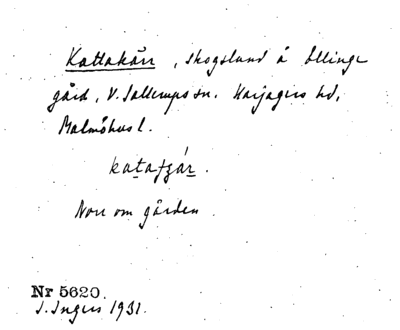 Kattakärr, skogslund å Ellinge
gård, V. Sallerups sn. Harjagers hd,
Malmöhus l.
Norr om gården.
Nr 5620.
I. Ingers 1931.